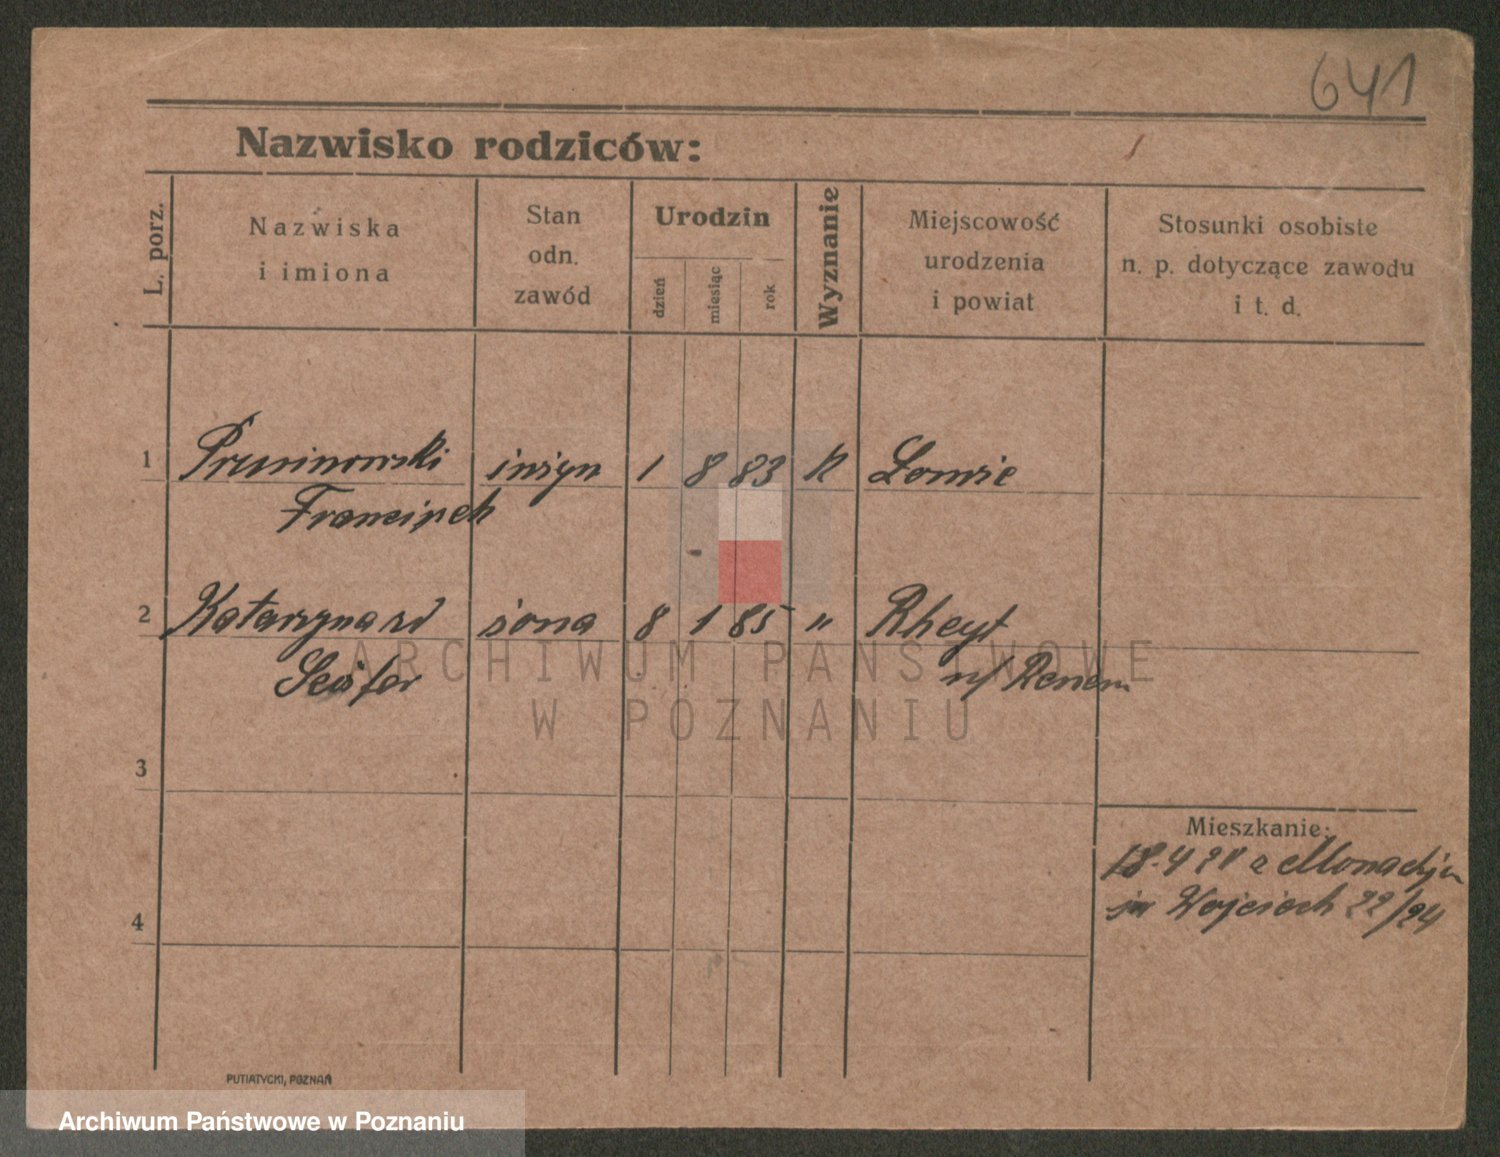 641
Nazwisko rodziców:
L. porz.
Nazwiska
i imiona
Stan
odn.
zawód
Urodzin
dzień
miesiąc
rok
Wyznanie
Miejscowość
urodzenia
i powiat
Stosunki osobiste
n. p. dotyczące zawodu
i t. d.
1 Prusinowski inżyn 1 8 83 K
Franciszek
2 Katarzyna żona 8 1 85 "
Rheyt
n/ Renem
ARCHIWUM PAŃSTWOWE
W POZNANIU
3
Mieszkanie:
18.4 z Monachjum
Wojciech 22/24
4
PUTIATYCKI, POZNAŃ
Archiwum Państwowe w Poznaniu